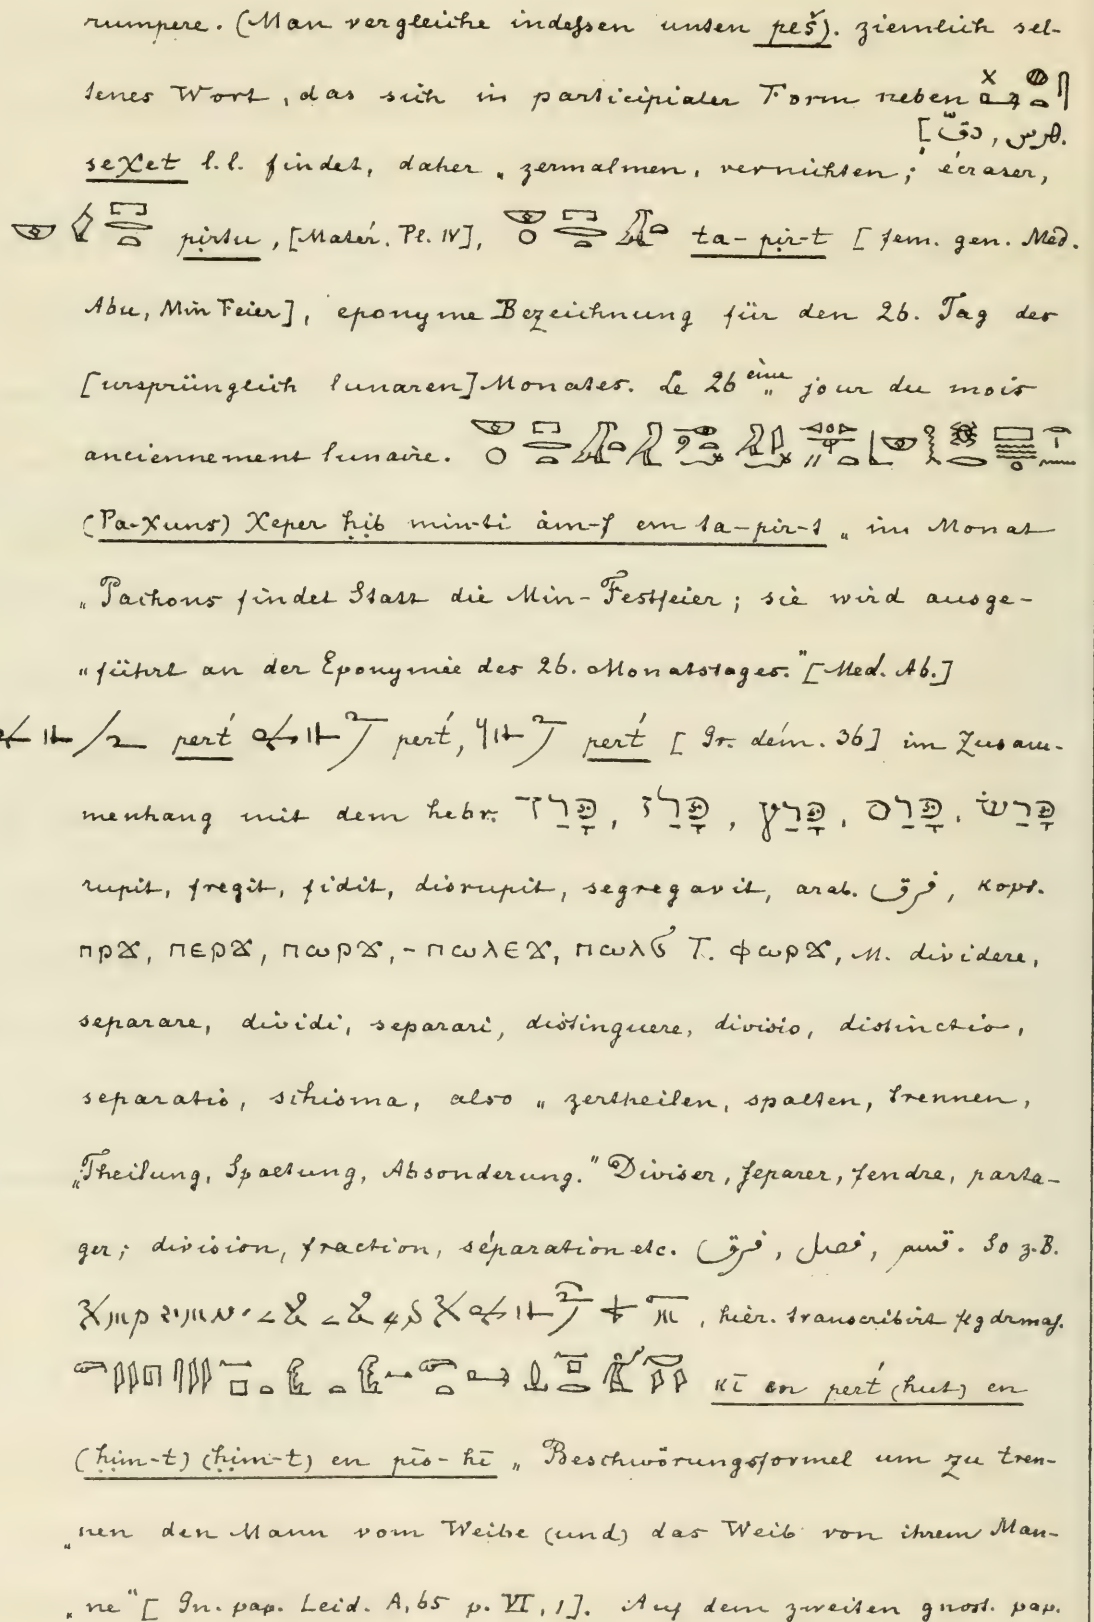 rumpere. (Man vergleiche indessen unten peš). ziemlich sel-
tenes Wort, das sich in participialer Form neben
[دقّ, هرس.
seχet l.l. findet, daher „zermalmen, vernichten; écraser,
pirtu, [Matér. Pl. IV], ta-pir-t [fem. gen. Med.
Abu, Min Feier], eponyme Bezeichnung für den 26. Tag des
[ursprünglich lunaren] Monates. Le 26ème jour du mois
anciennement lunaire.
(Pa-χuns) χeper ḥib min-ti àm-f em ta-pir-t „im Monat
„Pachons findet Statt die Min-Festfeier; sie wird ausge-
„führt an der Eponymie des 26. Monatstages." [Med. Ab.]
pert́ pert́, pert́ [Gr. dém. 36] im Zusam-
menhang mit dem hebr. פָּרַד, פָּרַז, פָּרַץ, פָּרַס, פָּרַשׂ
rupit, fregit, fidit, disrupit, segregavit, arab. فرق, kopt.
ⲡⲣϫ, ⲡⲉⲣϫ, ⲡⲱⲣϫ, - ⲡⲱⲗⲉϫ, ⲡⲱⲗϭ T. ⲫⲱⲣϫ, M. dividere,
separare, dividi, separari, distinguere, divisio, distinctio,
separatio, schisma, also „zertheilen, spalten, trennen,
„Theilung, Spaltung, Absonderung." Diviser, séparer, fendre, parta-
ger; division, fraction, séparation etc. فرق, فصل, قسم. So z.B.
, hier. transcribirt
kī en pert́ (hut) en
(ḥim-t) (ḥim-t) en pīs-hī „Beschwörungsformel um zu tren-
„nen den Mann vom Weibe (und) das Weib von ihrem Man-
„ne" [Gn. pap. Leid. A, 65 p. VI, 1]. Auf dem zweiten gnost. pap.